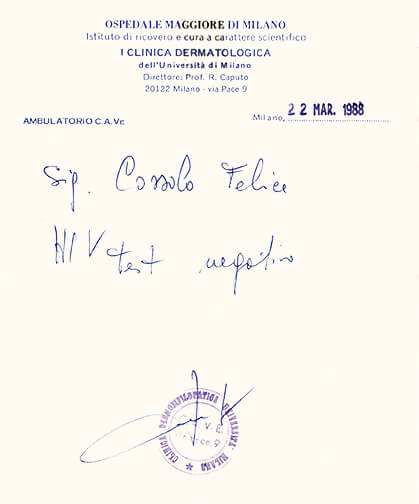 OSPEDALE MAGGIORE DI MILANO
Istituto di ricovero e cura a carattere scientifico
I CLINICA DERMATOLOGICA
dell'Università di Milano
Direttore: Prof. R. Caputo
20122 Milano - via Pace 9
AMBULATORIO C.A.Ve
Milano, 22 MAR. 1988
Sig. Cossolo Felice
HIV test negativo
CLINICA DERMOSIFILOPATICA UNIVERSITA' MILANO
V. E.
Pace, 9